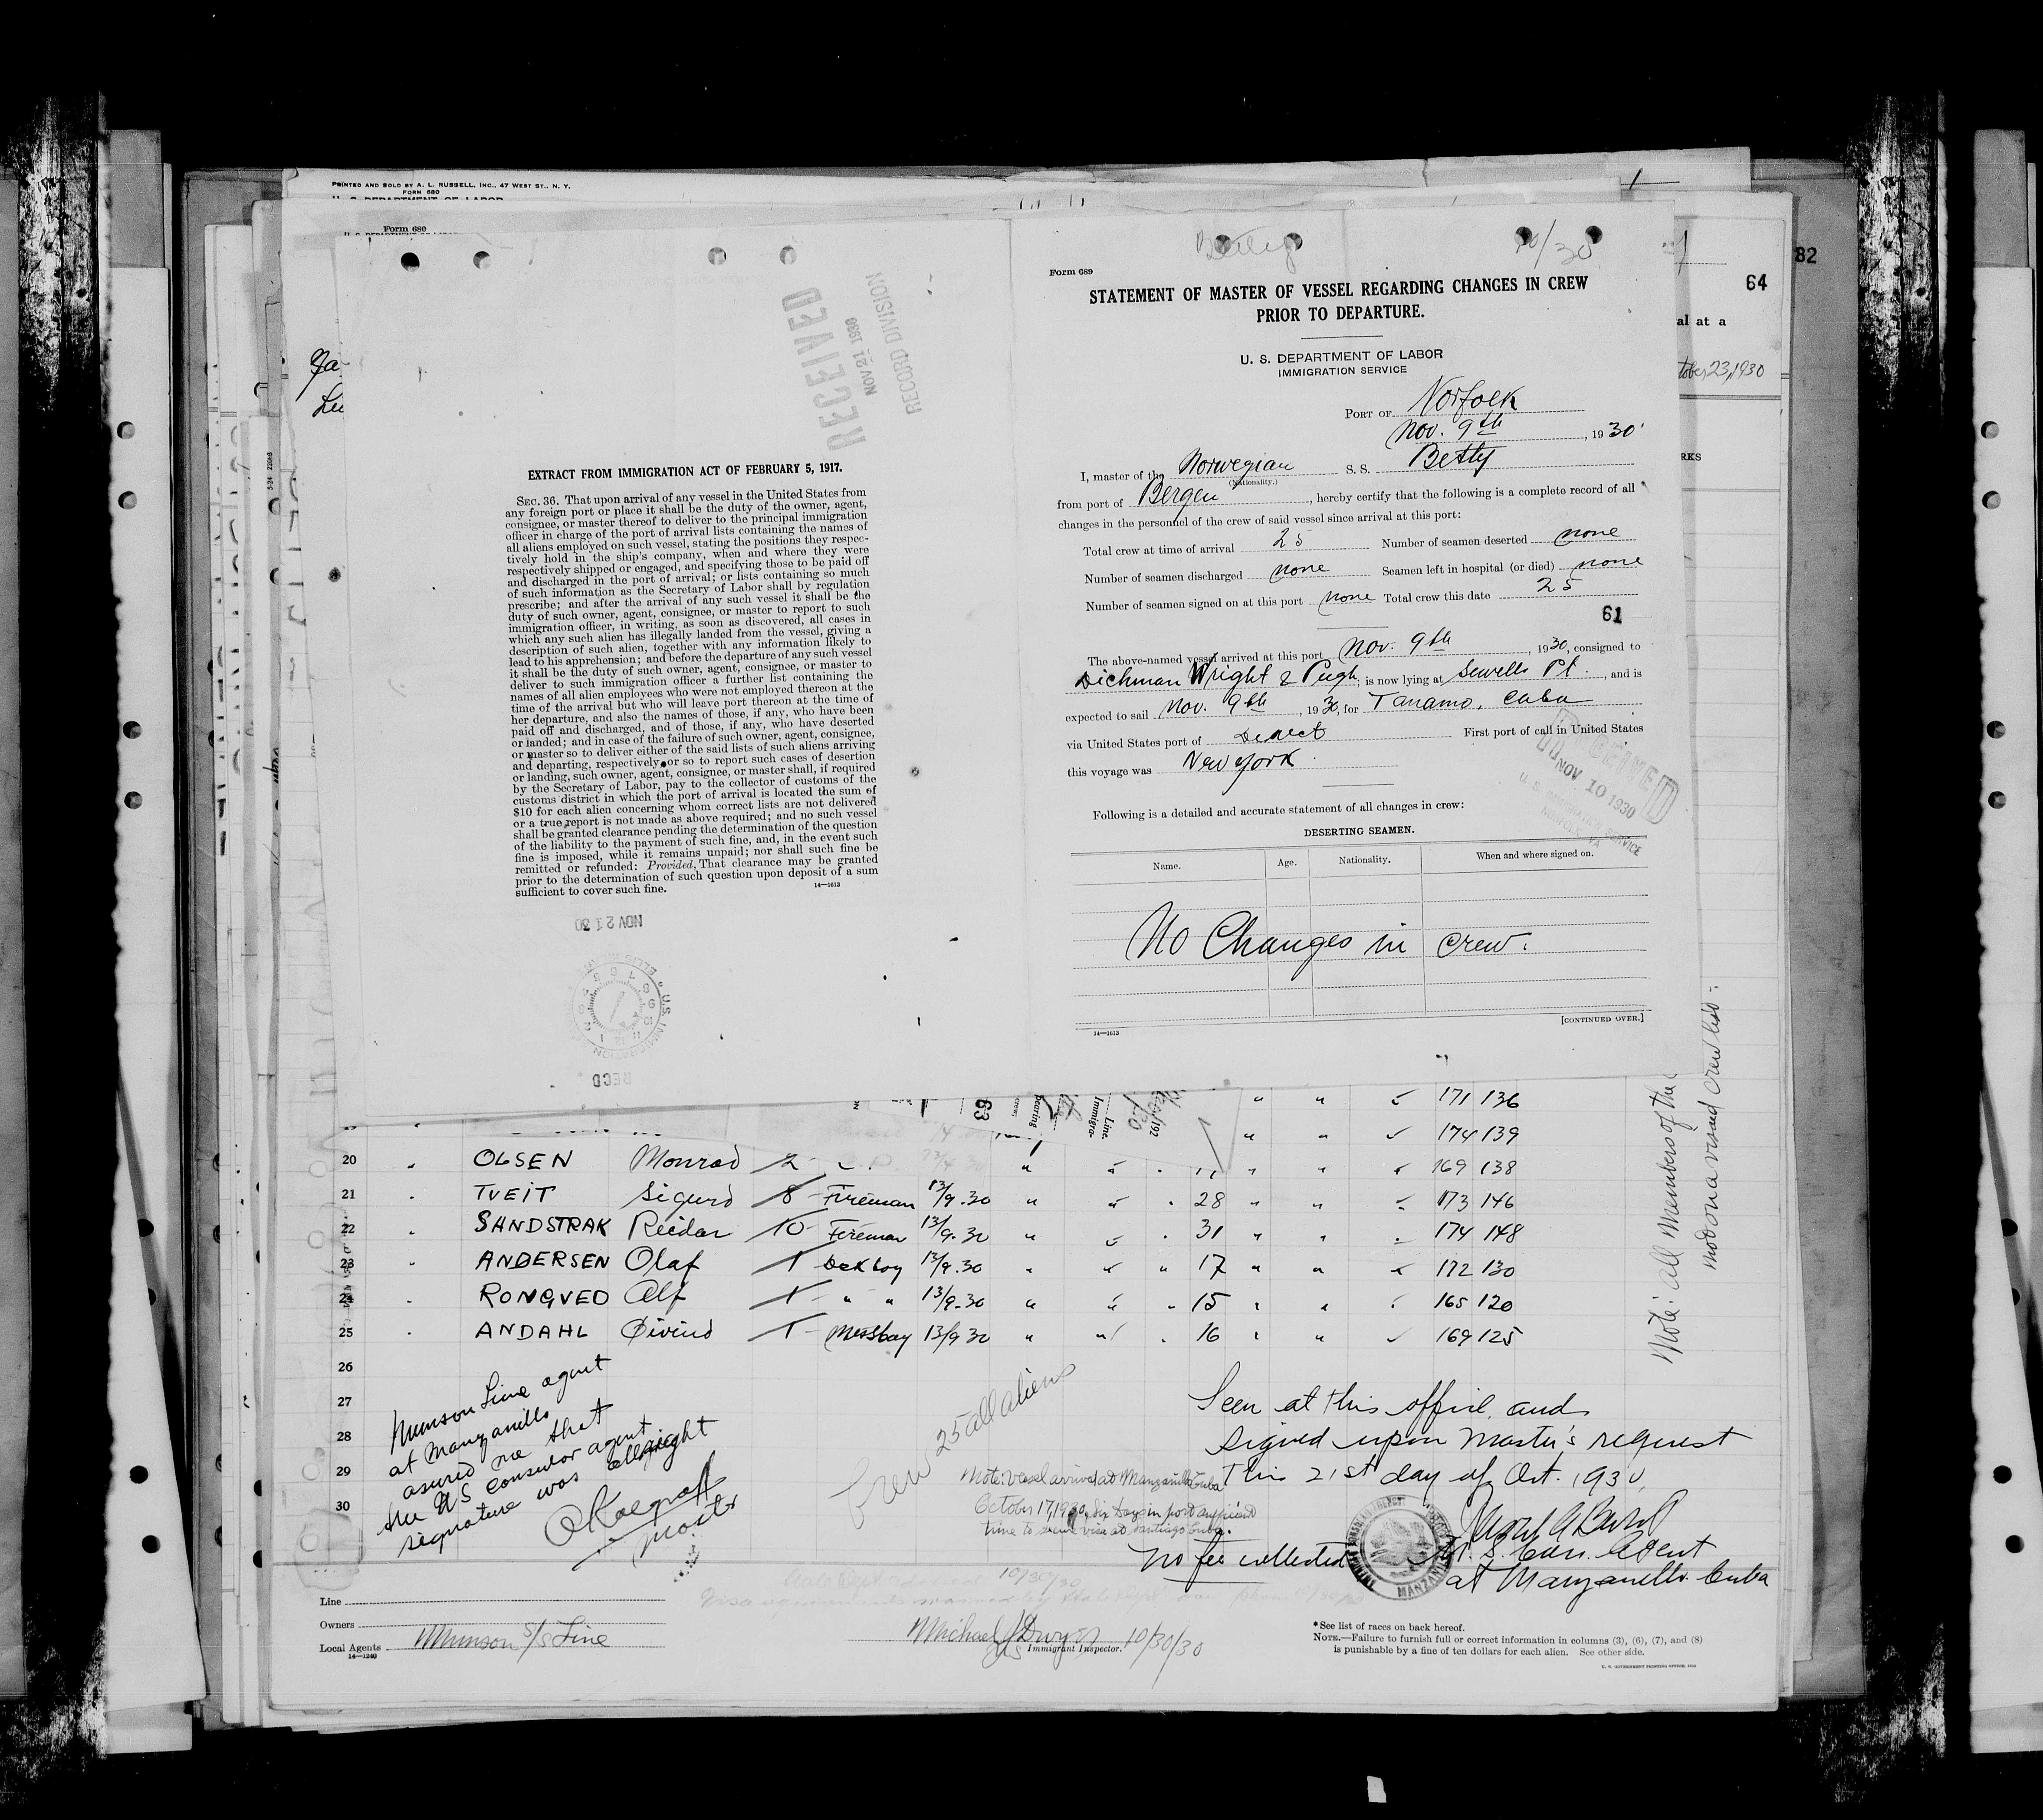 PRINTED AND SOLD BY A. L. RUSSELL, INC., 47 WEST ST., N. Y.
FORM 680
U. S. DEPARTMENT OF LABOR
Form 680
RECEIVED
NOV 21 1930
RECORD DIVISION
EXTRACT FROM IMMIGRATION ACT OF FEBRUARY 5, 1917.
SEC. 36. That upon arrival of any vessel in the United States from
any foreign port or place it shall be the duty of the owner, agent,
consignee, or master thereof to deliver to the principal immigration
officer in charge of the port of arrival lists containing the names of
all aliens employed on such vessel, stating the positions they respec-
tively hold in the ship's company, when and where they were
respectively shipped or engaged, and specifying those to be paid off
and discharged in the port of arrival; or lists containing so much
of such information as the Secretary of Labor shall by regulation
prescribe; and after the arrival of any such vessel it shall be the
duty of such owner, agent, consignee, or master to report to such
immigration officer, in writing, as soon as discovered, all cases in
which any such alien has illegally landed from the vessel, giving a
description of such alien, together with any information likely to
lead to his apprehension; and before the departure of any such vessel
it shall be the duty of such owner, agent, consignee, or master to
deliver to such immigration officer a further list containing the
names of all alien employees who were not employed thereon at the
time of the arrival but who will leave port thereon at the time of
her departure, and also the names of those, if any, who have been
paid off and discharged, and of those, if any, who have deserted
or landed; and in case of the failure of such owner, agent, consignee,
or master so to deliver either of the said lists of such aliens arriving
and departing, respectively, or so to report such cases of desertion
or landing, such owner, agent, consignee, or master shall, if required
by the Secretary of Labor, pay to the collector of customs of the
customs district in which the port of arrival is located the sum of
$10 for each alien concerning whom correct lists are not delivered
or a true report is not made as above required; and no such vessel
shall be granted clearance pending the determination of the question
of the liability to the payment of such fine, and, in the event such
fine is imposed, while it remains unpaid; nor shall such fine be
remitted or refunded: Provided, That clearance may be granted
prior to the determination of such question upon deposit of a sum
sufficient to cover such fine.
14—1613
NOV 21 30
U.S. IMMIGRATION
RECD
Betty 10/30
Form 689
STATEMENT OF MASTER OF VESSEL REGARDING CHANGES IN CREW
PRIOR TO DEPARTURE.
U. S. DEPARTMENT OF LABOR
IMMIGRATION SERVICE
PORT OF Norfolk
Nov. 9th, 1930
I, master of the Norwegian S. S. Betty
(Nationality.)
from port of Bergen, hereby certify that the following is a complete record of all
changes in the personnel of the crew of said vessel since arrival at this port:
Total crew at time of arrival 25 Number of seamen deserted none
Number of seamen discharged none Seamen left in hospital (or died) none
Number of seamen signed on at this port none Total crew this date 25
61
The above-named vessel arrived at this port Nov. 9th, 1930, consigned to
Dichman Wright & Pugh; is now lying at Sewells Pt., and is
expected to sail Nov. 9th, 1930, for Tanamo, Cuba
via United States port of Direct First port of call in United States
this voyage was New York.
RECEIVED
NOV 10 1930
U. S. IMMIGRATION SERVICE
NORFOLK, VA
Following is a detailed and accurate statement of all changes in crew:
DESERTING SEAMEN.
Name. Age. Nationality. When and where signed on.
No Changes in crew.
14—1613
[CONTINUED OVER.]
82
64
al at a
tober 23, 1930
RKS
63
171 136
174 139
20 OLSEN Monrad 169 138
21 TVEIT Sigurd 8 Fireman 13/9.30 28 173 146
22 SANDSTRAK Reidar 10 Fireman 13/9.30 31 174 148
23 ANDERSEN Olaf 1 Deckboy 13/9.30 17 172 130
24 RONGVED Alf 1 " " 13/9.30 15 165 120
25 ANDAHL Øivind 1 Messboy 13/9 30 16 169 125
26
27
28
29
30
Munson Line agent
at Manzanillo
asured me that
the US consular agent
signature was allright
Master
Crew 25 all aliens
Note: Vessel arrived at Manzanillo Cuba
October 17, 1930, six days in port sufficient
time to secure visa at Santiago Cuba.
Seen at this office, and
signed upon Master's request
this 21st day of Oct. 1930,
U. S. Con. Agent
at Manzanillo Cuba
No fee collected
MANZANILLO
Note: All members of the
crew list
Line
Owners
Local Agents Munson S/S Line
14—1240
Michael J Dwyer 10/30/30
Immigrant Inspector.
*See list of races on back hereof.
NOTE.—Failure to furnish full or correct information in columns (3), (6), (7), and (8)
is punishable by a fine of ten dollars for each alien. See other side.